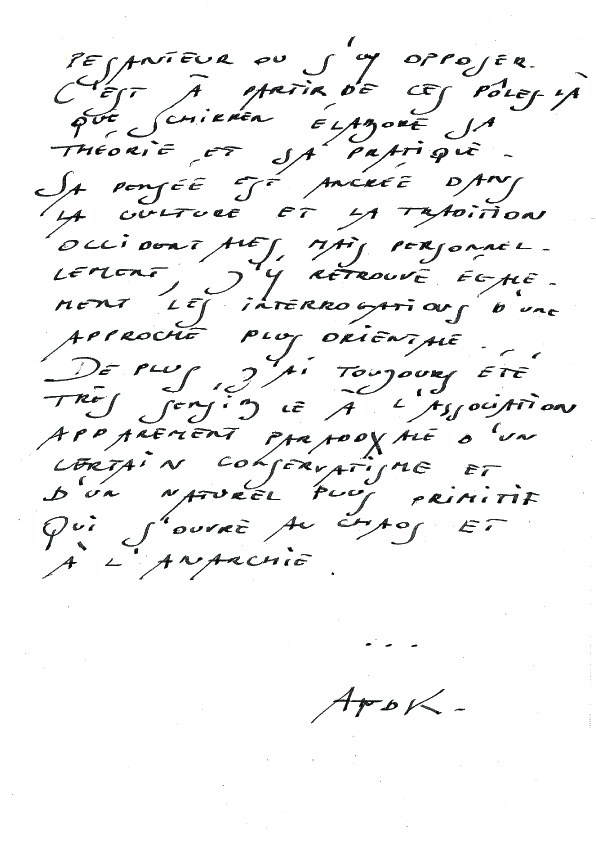 PESANTEUR OU S'Y OPPOSER.
C'EST À PARTIR DE CES PÔLES-LÀ
QUE SCHIRREN ÉLABORE SA
THÉORIE ET SA PRATIQUE.
SA PENSÉE EST ANCRÉE DANS
LA CULTURE ET LA TRADITION
OCCIDENTALES, MAIS PERSONNEL-
LEMENT, J'Y RETROUVE ÉGALE-
MENT LES INTERROGATIONS D'UNE
APPROCHE PLUS ORIENTALE.
DE PLUS, J'AI TOUJOURS ÉTÉ
TRÈS SENSIBLE À L'ASSOCIATION
APPAREMENT PARADOXALE D'UN
CERTAIN CONSERVATISME ET
D'UN NATUREL PLUS PRIMITIF
QUI S'OUVRE AU CHAOS ET
À L'ANARCHIE.
...
ATDK-